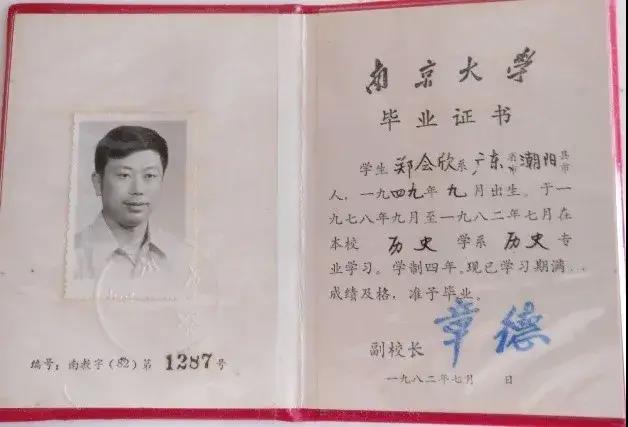 编号：南教字(82)第 1287 号
南京大学
毕业证书
学生 郑会欣 系 广东 省市 潮阳 县市
人，一九四九年 九 月出生。于一
九七八年九月至一九八二年七月在
本校 历史 学系 历史 专
业学习。学制四年，现已学习期满
成绩及格，准予毕业。
副校长 章德
一九八二年七月 日